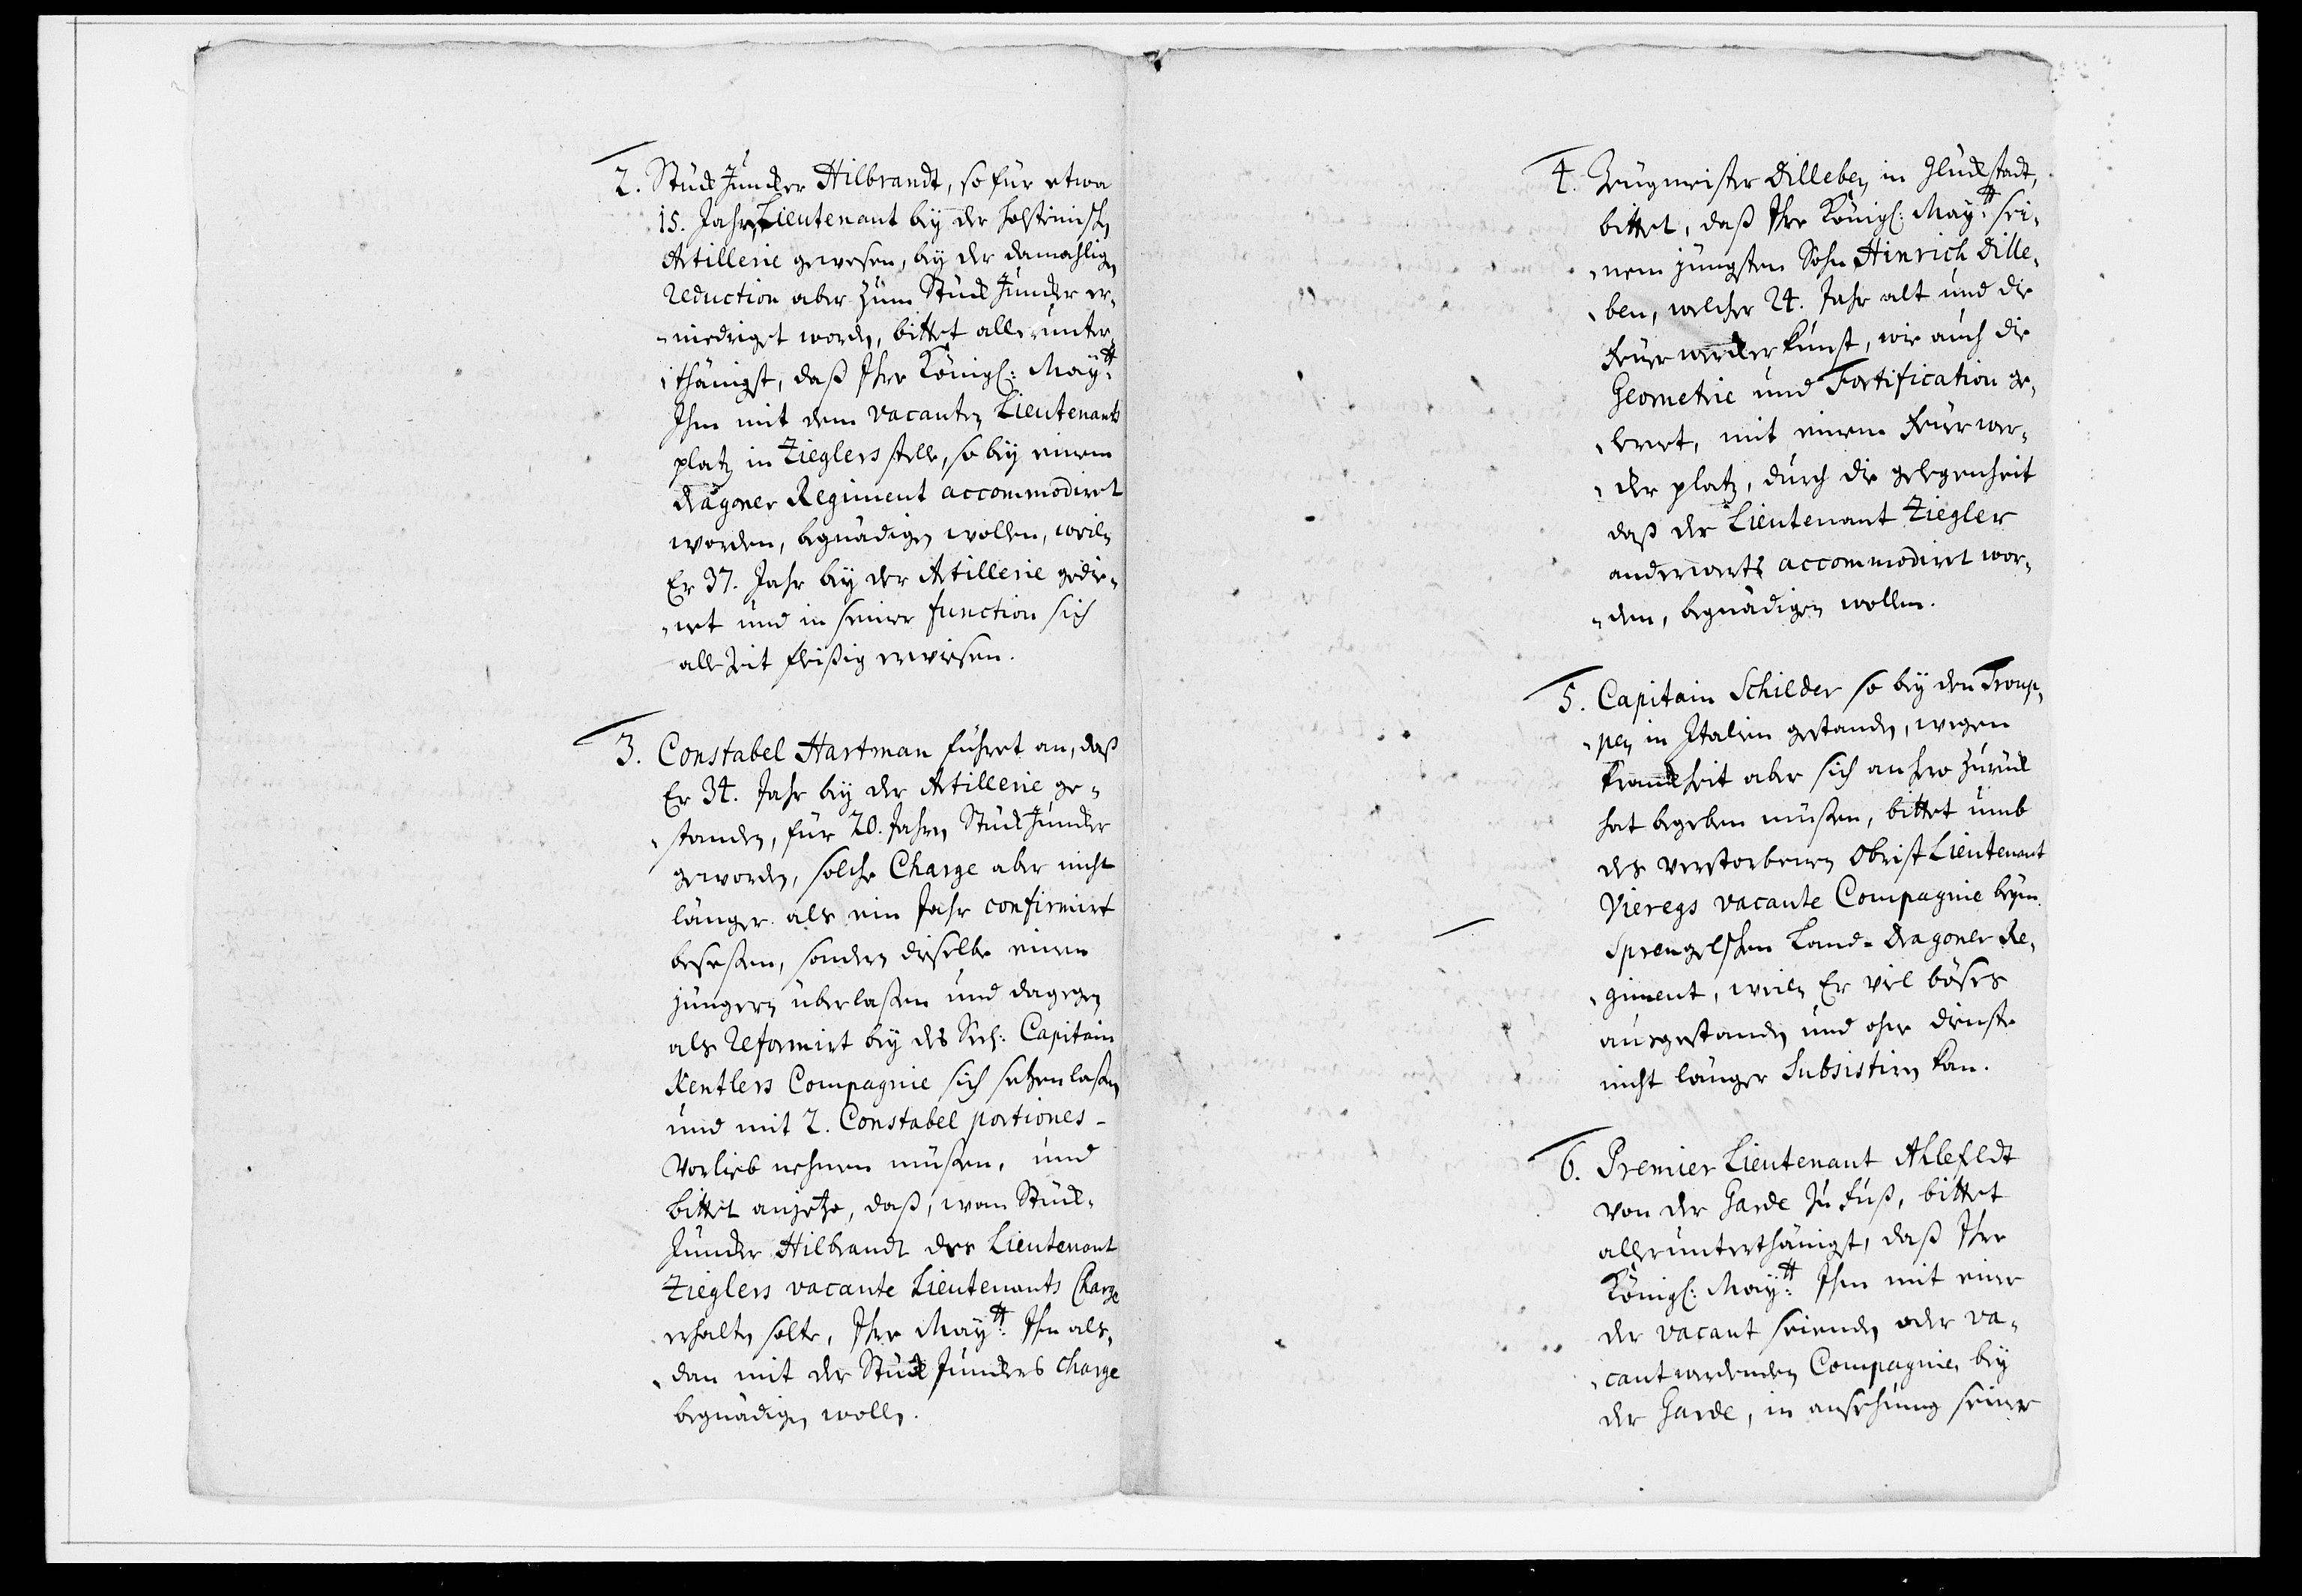 2. Stück Juncker Hilbrandt, so für etwa
15. Jahren Lieutenant beÿ der Holsteinischen
Artillerie gewesen, beÿ der damahligen
reduction aber zum Stück Juncker er-
-niedriget worden, bittet allerunter-
-thänigst, daß Ihre Königl: Maÿtt:
Ihm mit dem vacanten Lieutenants
platz in Zieglers stelle, so beÿ einem
Dragoner Regiment accommodiret
worden, begnädigen wollen, weiln
Er 37. Jahr beÿ der Artillerie gedie-
-net und in seiner function sich
alle Zeit fleißig erwiesen.
3. Constabel Hartman führet an, daß
Er 34. Jahr beÿ der Artillerie ge-
-standen, für 20. Jahren Stück Juncker
geworden, solche Charge aber nicht
länger als ein Jahr confirmirt
beseßen, sondern dieselbe einem
jüngern überlaßen und dagegen
als reformirt beÿ des Seel: Capitain
Kentlers Compagnie sich setzen laßen
und mit 2. Constabel portiones
Vorlieb nehmen müßen, und
bittet anjetzo, daß, wan Stück-
Juncker Hilbrandt des Lieutenant
Zieglers vacante Lieutenants Charge
erhalten solte, Ihre Maÿtt: Ihn als-
-dan mit der Stück Junckers charge
begnädigen wollen.
4. Zeugmeister Dilleben in Glückstadt,
bittet, daß Ihre Königl: Maÿtt: sei-
-nem jüngsten Sohn Hinrich Dille-
-ben, welcher 24. Jahr alt und die
Feuerwercker kunst, wie auch die
Geometrie und Fortification ge-
-lernet, mit einem Feuerwer-
-cker platz, durch die gelegenheit
daß der Lieutenant Ziegler
anderwerts accommodiret wor-
-den, begnädigen wollen.
5. Capitain Schilder so beÿ den Troup-
-pen in Italien gestanden, wegen
kranckheit aber sich anhero zurück
hat begeben müßen, bittet umb
des verstorbenen Obrist Lieutenant
Vieregs vacante Compagnie beÿm
Sprengelschen Land-Dragoner Re-
-giment, weiln Er viel böses
ausgestanden und ohne dienste
nicht länger Subsistiren kan.
6. Premier Lieutenant Ahlefeldt
von der Garde zu Fuß, bittet
allerunterthänigst, daß Ihre
Königl: Maÿtt: Ihm mit einer
der vacant seienden oder va-
-cant werdenden Compagnie, beÿ
der Garde, in ansehung seiner